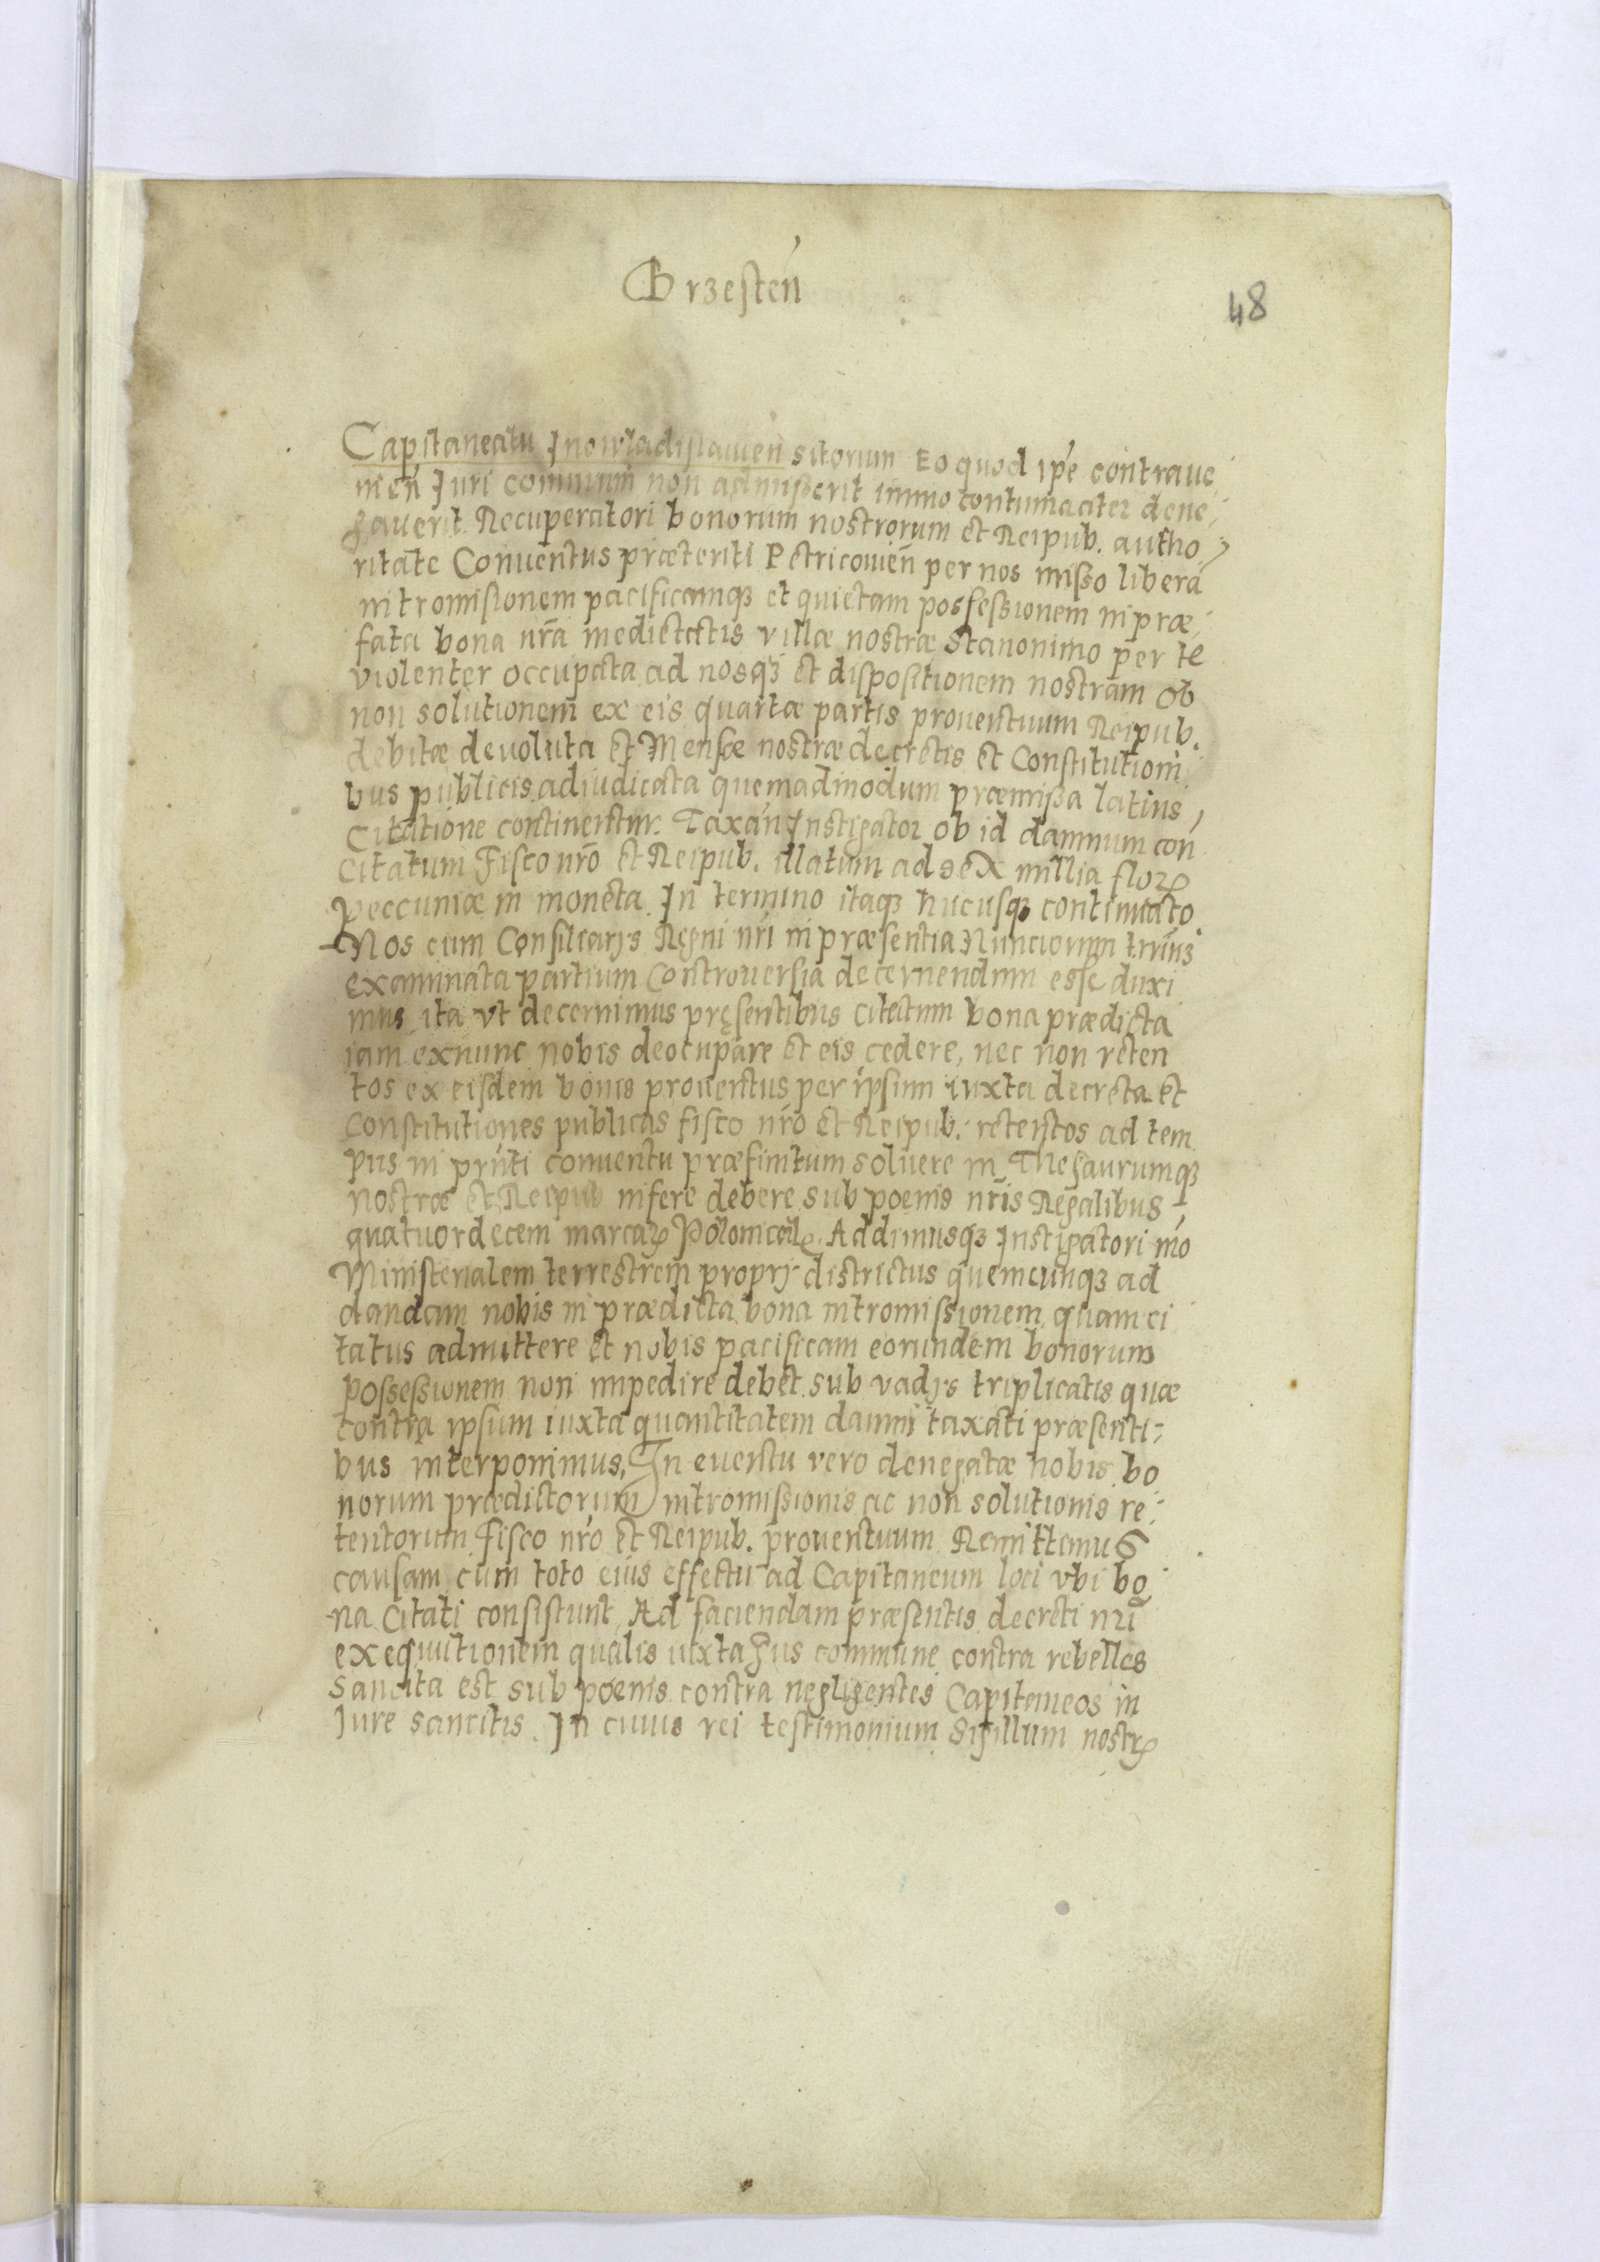 Brzesteń
48
Capitaneatu Inowladislauień sitorum Eo quod ip̃e contraue
nień Iuri communi non admißerit immo contumaciter dene,
gauerit Recuperatori bonorum nostrorum et Reipub. autho,
ritate Conuentus præteriti Petricouień per nos mißo liberã
intromisionem pacificamq3 et quietam possessionem in præ,
fata bona nr̃a medietatis villæ nostræ Stanonimo per te
violenter occupata ad nosq3 et dispositionem nostram ob
non solutionem ex eis quartæ partis prouentuum Reipub.
debitæ deuoluta et Mensæ nostræ decretis et Constitutioni
bus publicis adiudicata quemadmodum præmißa latius,
Citatione continentur. Taxań Instigator ob id damnum coń
Citatum Fisco nr̃o et Reipub. illatum ad sex millia floꝝ
Peccuniæ in moneta. In termino itaq3 hucusq3 continuato
Nos cum Consiliarijs Regni nr̃i in præsentia Nunciorum tr̃riũ3
examinata partium Controuersia decernendum esse duxi
mus, ita vt decernimus pręsentibus citatum bona prædicta
iam exnunc nobis deocupare et eis cedere, nec non reten
tos ex eisdem bonis prouentus per ipsum iuxta decreta et
Constitutiones publicas fisco nr̃o et Reipub. retentos ad tem
pus in pr̃nti conuentu præfinitum soluere in Thesaurumq3
nostræ et Reipub inferre debere sub poenis nr̃is Regalibus
quatuordecem marcaꝝ Polonicalꝝ. Addimusq3 Instigatori nr̃o
Ministerialem terrestrem proprij districtus quemcunq3 ad
dandam nobis in prædicta bona intromissionem, quam ci
tatus admittere et nobis pacificam eorundem bonorum
possessionem non impedire debet sub vadijs triplicatis quæ
contra ipsum iuxta quantitatem damni taxati præsenti,
bus interponimus. In euentu vero denegatæ nobis bo
norum prædictorum intromissionis ac non solutionis re,
tentorum Fisco nr̃o et Reipub. prouentuum Remittimus
causam cum toto eius effectu ad Capitaneum loci vbi bo
na Citati consistunt Ad faciendam præsentis decreti nr̃i
exequutionem qualis iuxta Jus commune contra rebelles
Sancita est sub poenis contra negligentes Capitaneos in
Iure sancitis. In cuius rei testimonium Sigillum nostꝝ